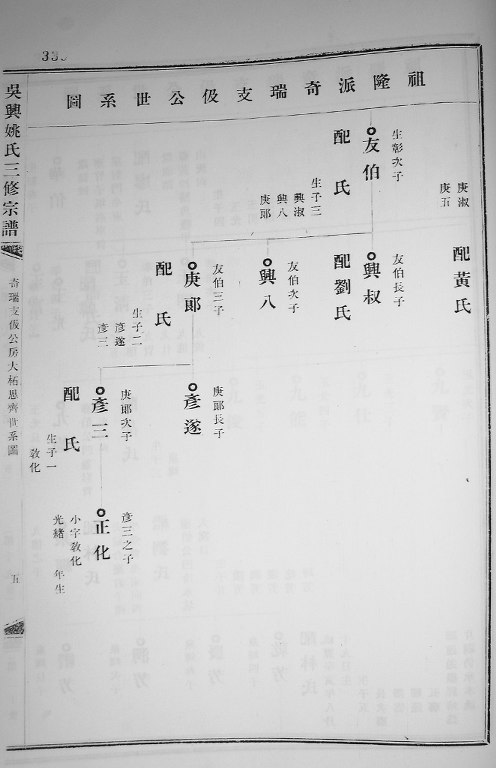 祖隆派奇瑞支伋公世系圖
庚淑
庚五
配黃氏
生彰次子
友伯
配　氏
生子三
興淑
興八
庚郎
友伯長子
興叔
配劉氏
友伯次子
興八
友伯三子
庚郎
配　氏
生子二
彥遂
彥三
庚郎長子
彥遂
庚郎次子
彥三
配　氏
生子一
敦化
彥三之子
正化
小字敦化
光緒　年生
吳興姚氏三修宗譜
奇瑞支伋公房大柘恩齊世系圖
五